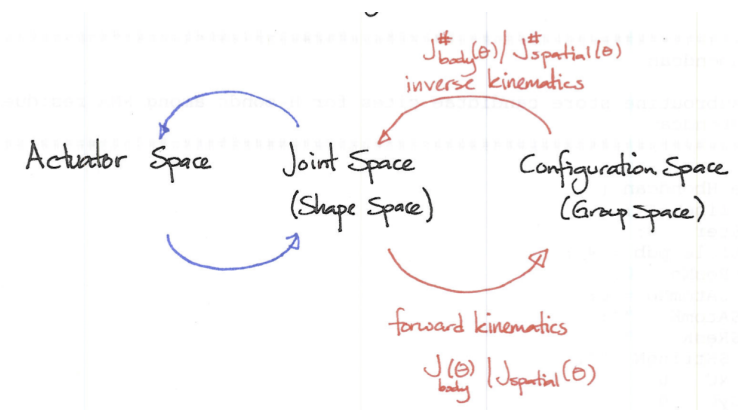 J#body(θ) / J#spatial(θ)
inverse kinematics
Actuator Space
Joint Space
(Shape Space)
Configuration Space
(Group Space)
forward kinematics
J(θ) | Jspatial(θ)
body